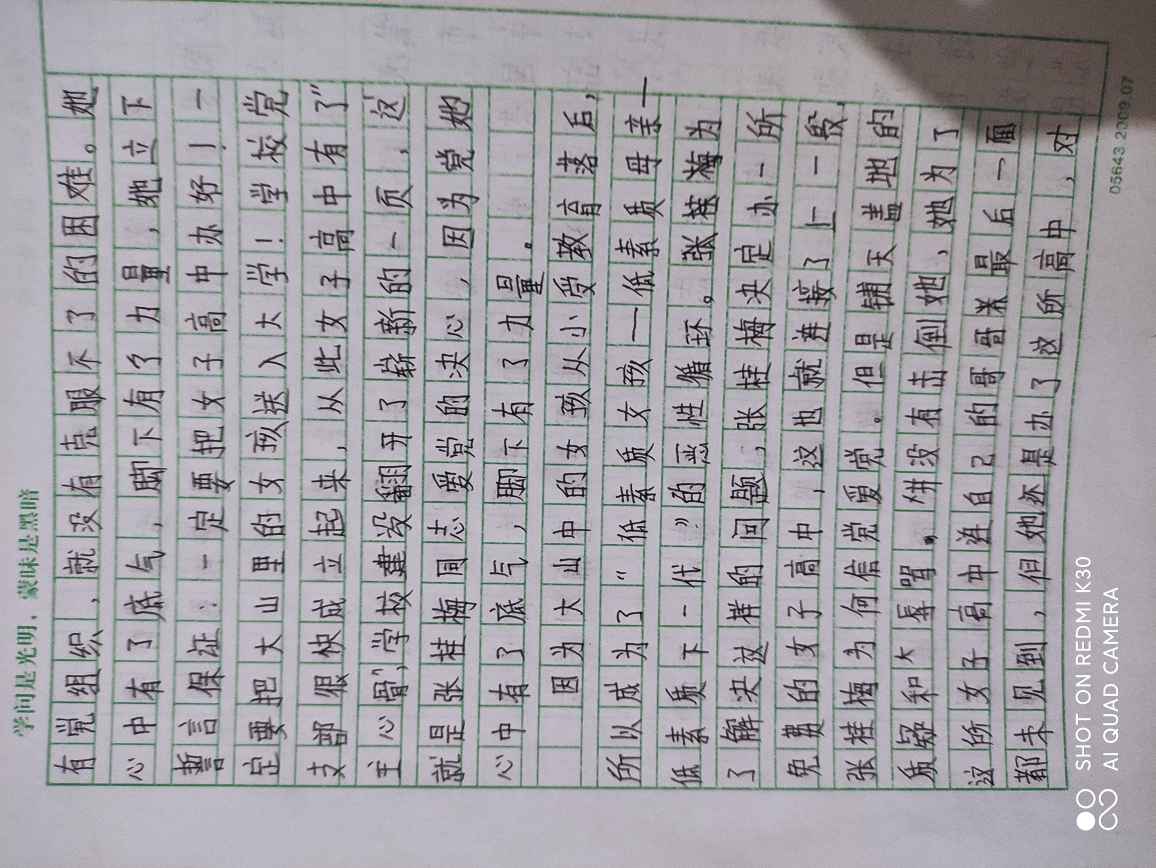 学问是光明，蒙昧是黑暗
有党组织，就没有克服不了的困难。她
心中有了底气，脚下有了力量，她立下
誓言保证：一定要把女子高中办好！一
定要把大山里的女孩送入大学！学校党
支部很快成立起来，从此女子高中有了“
主心骨”，学校建设翻开了崭新的一页，这
就是张桂梅同志爱党的决心，因为党她
心中有了底气，脚下有了力量。
因为大山中的女孩从小受教育落后，
所以成为了“低素质女孩——低素质母亲—
低素质下一代”的恶性循环。张桂梅为
了解决这样的问题，张桂梅决定办一所
免费的女子高中，这也就连接了上一段，
张桂梅为何信党爱党。但是铺天盖地的
质疑和辱骂，并没有击倒她，她为了
这所女子高中连自己的哥哥最后一面
都未见到，但她还是办了这所高中，对
05643 2009.07
SHOT ON REDMI K30
AI QUAD CAMERA